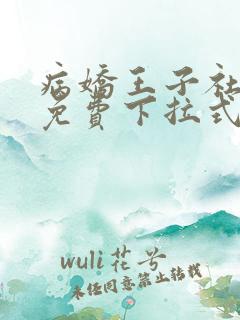 病娇王子社
免费下拉式
wuli花兮
未经同意禁止转载